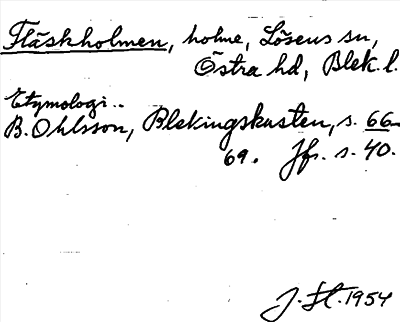 Fläskholmen, holme, Lösens sn,
Östra hd, Blek. l.
Etymologi..
B. Ohlsson, Blekingskusten, s. 66-
69. Jfr s. 40.
J. St. 1954